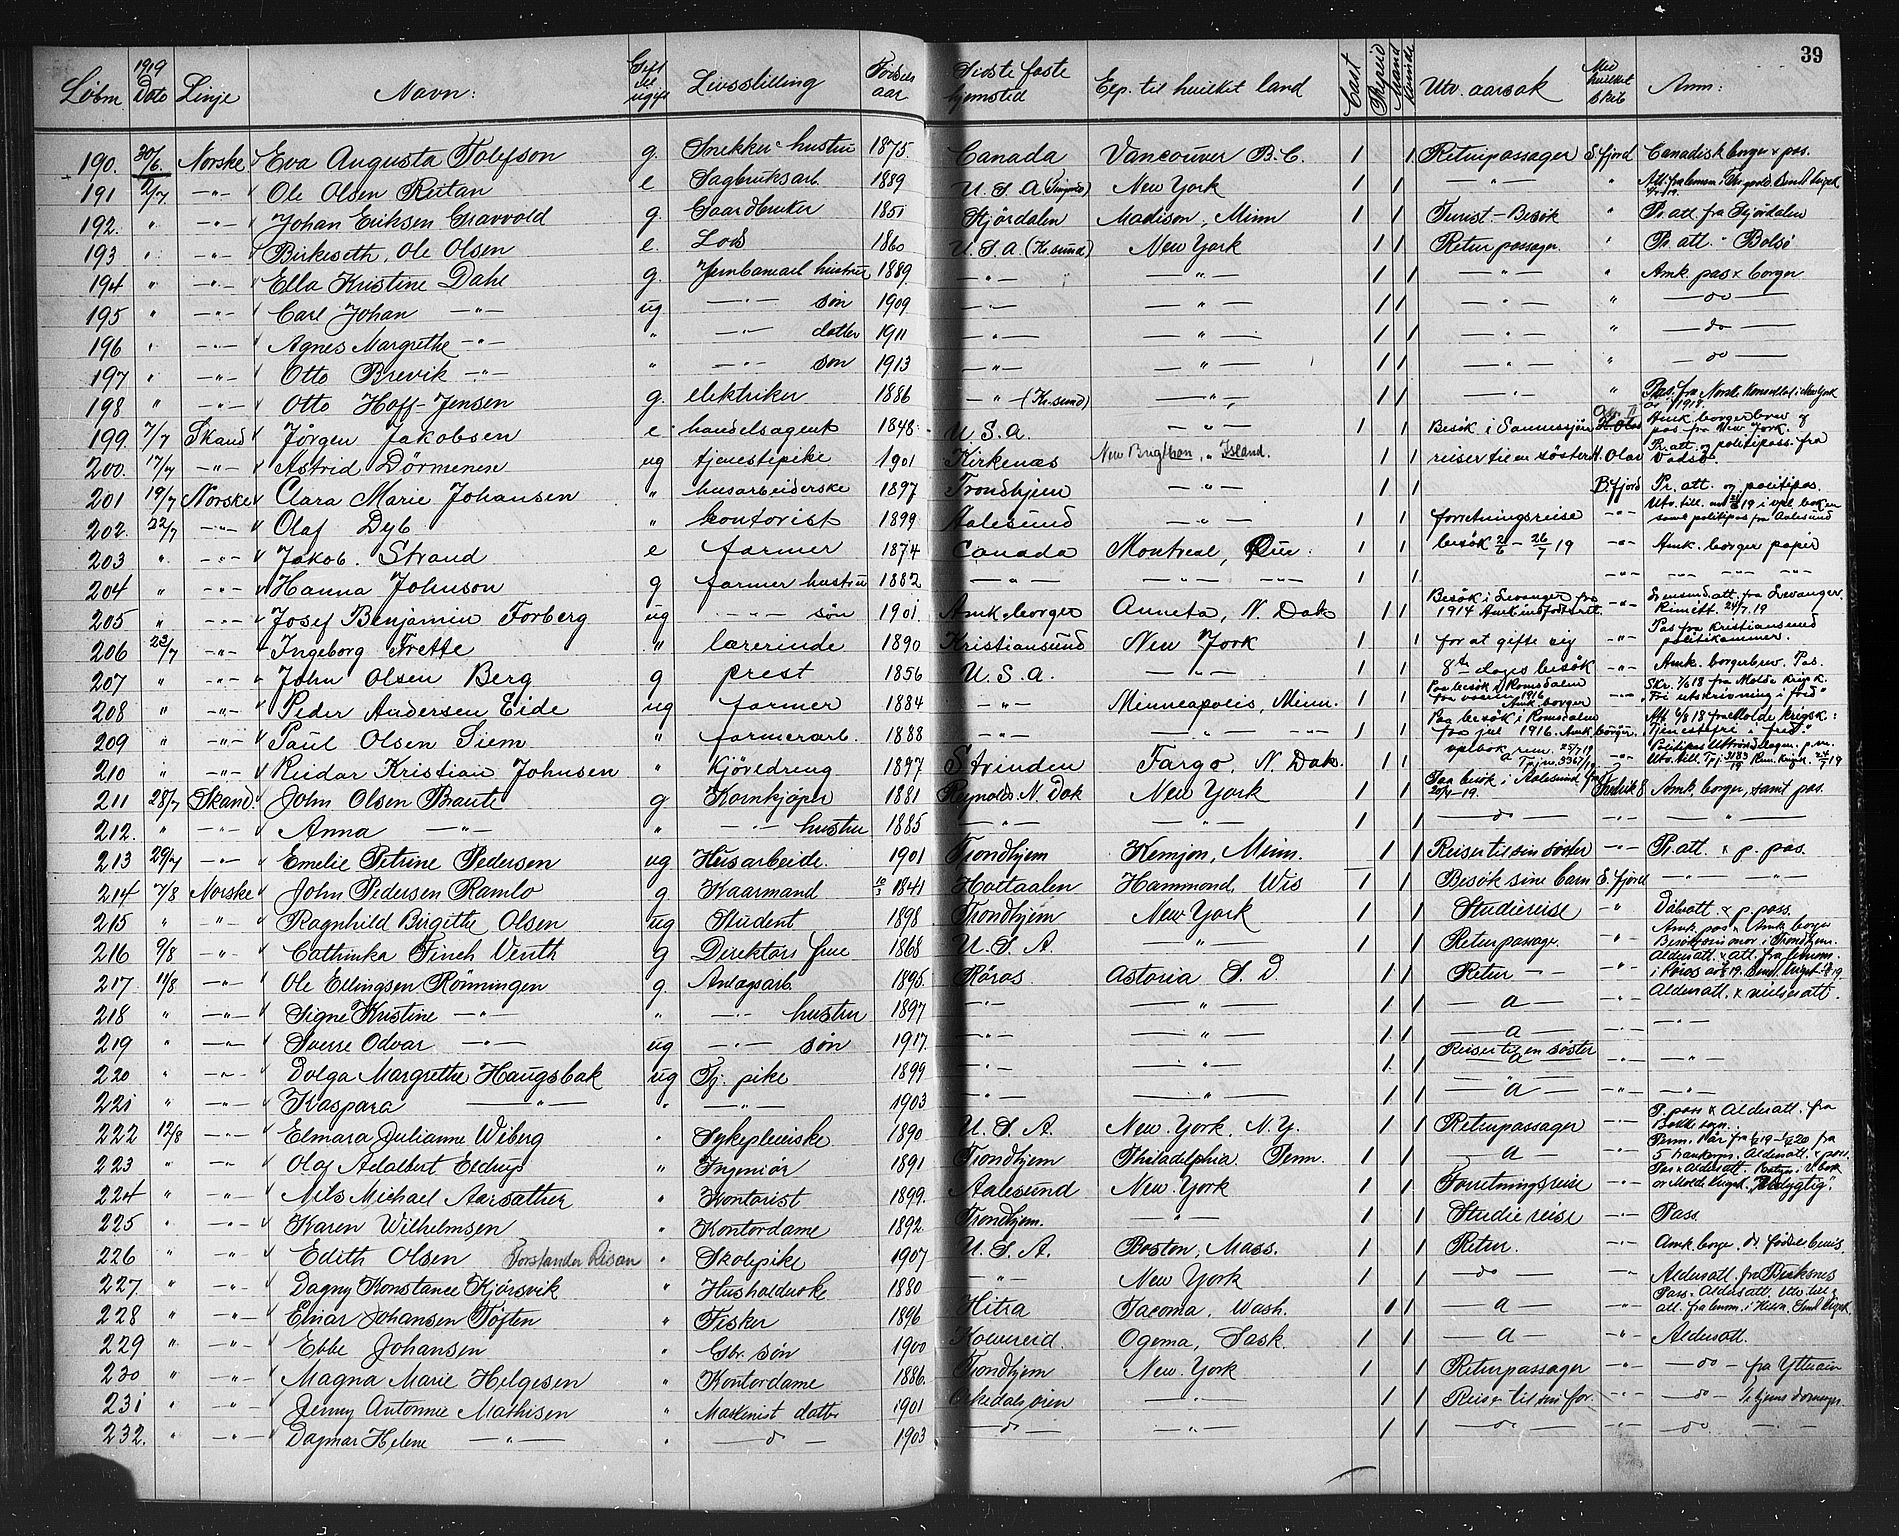 39
Löbnr. 1919 Dato Linje Navn: Gift el. ugift Livsstilling Födsels aar Sidste faste hjemsted Exp. til hvilket land Cast Prepeid Mand Kvinde Utv. aarsak Med hvilket skib Anm:
190. 30/6. Norske Eva Augusta Tolefson g. Snekker hustru 1875 Canada Vancouver B.C. 1 1 Returpassager S.fjord Canadisk borger & pas.
191 2/7 -"- Ole Olsen Reitan e Sagbruksarb. 1889 U.S.A New York 1 1 -"- "
192. " -"- Johan Eriksen Gravvold g. Gaardbruker 1851 Stjördalen Madison, Minn 1 1 Turist-Besök " Pr. att. fra Stjördalen
193 " -"- Birkeseth, Ole Olsen e. Lods 1860 U.S.A (Kr.sund) New York 1 1 Returpassager. " Pr. att. " Bolsö
194 " -"- Ella Kristine Dahl g. hustru 1889. -"- -"- 1 1 -"- " Amk. pas & borger
195 " -"- Carl Johan -"- ug -"- sön 1909 -"- -"- 1 1 -"- " -do-
196 " -"- Agnes Margrethe -"- " -"- datter 1911 -"- -"- 1 1 -"- " -do-
197 " -"- Otto Brevik -"- " -"- sön 1913 -"- -"- 1 1 -"- " -do-
198 " -"- Otto Hoff-Jensen g. elektriker 1886 -"- (Kr.sund) -"- 1 1 -"- " Pas. fra Norsk Konsulat i New York 1918.
199 7/7 Skand Jørgen Jakobsen e handelsagent 1848 U.S.A. -"- 1 1 Besök i Sannessjøen Amk borgerbrev og pas fra New York.
200. 17/7 -"- Astrid Dörmenen ug tjenestepike 1901 Kirkenæs New " Island. 1 1 reiser til en söster H. Olav Pr. att. og politipass. fra Vadsö.
201 19/7 Norske Clara Marie Johansen " husarbeiderske 1897 Trondhjem -"- 1 1 B.fjord Pr. att. og politipas.
202. 22/7 -"- Olaf Dyb " kontorist 1899 Aalesund -"- 1 1 forretningsreise -"- samt politipas fra Aalesund
203 " -"- Jakob. Strand e farmer 1874 Canada Montreal, 1 1 besök 2/6 - 26/7 19 -"- Amk. borger papir
204 " -"- Hanna Johnson g farmer hustru 1882 -"- -"- -"- 1 1 -"- -"- -"- -"-
205 " -"- Josef Benjamin Forberg ug -"- sön 1901 Amk. borger Aneta, N. Dak 1 1 Besök i Levanger fra 1914 -"- fra Levanger. 24/7.19
206 23/7 -"- Ingeborg Frette " lærerinde 1890 Kristiansund New York 1 1 for at gifte sig -"- Pas fra Kristiansund politikammer.
207 " -"- John Olsen Berg g prest 1856 U.S.A. -"- 1 1 8te dages besök -"- Amk. borgerbrev. Pas.
208 " -"- Peder Andersen Eide ug farmer 1884 -"- Minneapolis, Minn. 1 1 Paa besök i Romsdalen fra vaaren 1916 Amk borger -"- Skr. 7/6 18 fra Molde krigsk. "Fri utskrivning i fred"
209 " -"- Paul Olsen Siem " farmerarb. 1888 -"- -"- -"- 1 1 Paa besök i Romsdalen fra jul 1916. Amk. borger. 6/8 18 fra Molde krigsk: "Tjenestefri i fred"
210 " -"- Reidar Kristian Johnsen " Kjöredreng 1897 Strinden Fargo, N. Dak. 1 1 -"-
211 28/7 Skand. John Olsen Braute g Kornkjöper 1881 Reynolds N. Dak New York 1 1 Paa besök i Aalesund Fredrik 8 Amk. borger, samt pas.
212. " -"- Anna -"- " -"- hustru 1885 -"- -"- 1 1 -do- -"- -"-
213 29/7 -"- Emelie Petrine Pedersen ug Husarbeide. 1901 Trondhjem Kemjon, Minn. 1 1 Reiser til sin söster -"- Pr. att. & p. pas.
214 7/8 Norske John Pedersen Ramlo g Kaarmand 10/3 1841 Holtaalen Hammond, Wis 1 1 Besök sine barn S.fjord -"- -"-
215 " " Ragnhild Birgitte Olsen ug Student 1898 Trondhjem New York 1 1 Studiereise " Dåbsatt. & p. pass.
216 9/8 -"- Cathinka Finch Vinth g Direktörs frue 1868 U.S.A. -"- 1 1 Returpassage. " Amk. pas & Amk borger Besökt sin mor i Trondhjem.
217 11/8 -"- Ole Ellingsen Rönningen g. Anlægsarb 1895 Röros Astoria S. D. 1 1 Retur -"- -"- Aldersatt. & att. fra lensm. i Röros
218 " -"- Signe Kristine -"- " -"- hustru 1897 -"- -"- 1 1 -a- -"- Aldersatt. & vielsesatt.
219 " -"- Sverre Odvar -"- ug -"- sön 1917 -"- -"- 1 1 -a- -"- -"-
220 " -"- Dolga Margrethe Haugsbak ug Tj. pike 1899 -"- -"- 1 1 Reiser til en söster -a- -"- -"-
221 " -"- Kaspara -"- " -"- 1903 -"- -"- 1 1 -a- -"- -"-
222 12/8 -"- Elmara Julianne Wiberg " Sykepleierske 1890 U.S.A. New York. N.Y. 1 1 Returpassager -"- P. pass & Aldersatt. fra
223 " -"- Olaf Adalbert Eldrup " Ingeniör 1891 Trondhjem Philadelphia Penn. 1 1 -a- -"-
224 " -"- Nils Michael Aarsæther " Kontorist 1899. Aalesund New York 1 1 Forretningsreise -"- Pas & Aldersatt.
225 " -"- Karen Wilhelmsen " Kontordame 1892. Trondhjem. -"- 1 1 Studiereise -"- Pass.
226 " -"- Edith Olsen Forstander Risan " Skolepike 1907 U.S.A. Boston, Mass. 1 1 Retur. -"- Amk. borge. d. födselsbevis
227 " -"- Dagny Konstance Kjörsvik " Husholderske 1880 -"- New York 1 1 -do- -"- Aldersatt. fra Bæksnes
228 " -"- Einar Johansen Töften " Fisker 1896 Hitra Tacoma, Wash. 1 1 -a- -"- Pass. Aldersatt. Utv. till. & att. fra lensm. i Hitra
229 " -"- Ebbe Johansen " Gbr. sön 1900 Kolvereid Ogema, Sask. 1 1 -a- -"- Aldersatt.
230 " -"- Magna Marie Helgesen " Kontordame 1886. Trondhjem New York 1 1 Returpassager -"- -do- fra Ytterøen
231 " -"- Jenny Antonnie Mathisen " Maskinist datter 1901 Orkedalsören -"- 1 1 Reiser til sin far -"- -do-
232. " -"- Dagmar Helene -"- " -d- 1903 -do- -"- 1 1 -do- -"- -do- -"-